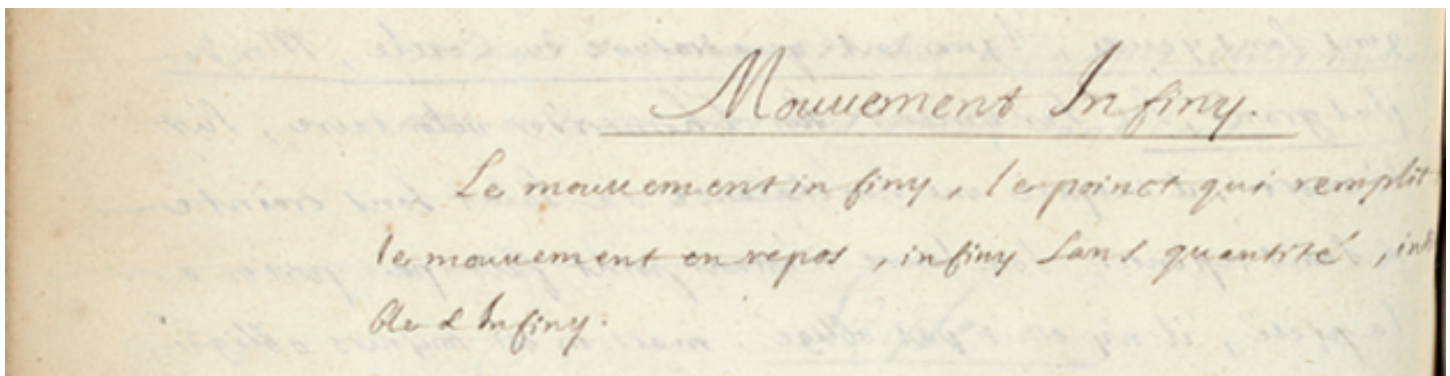 Mouuement Infiny.
Le mouuement infiny, le poinct qui remplit
le mouuement en repos, infiny sans quantité,
ble & Infiny.